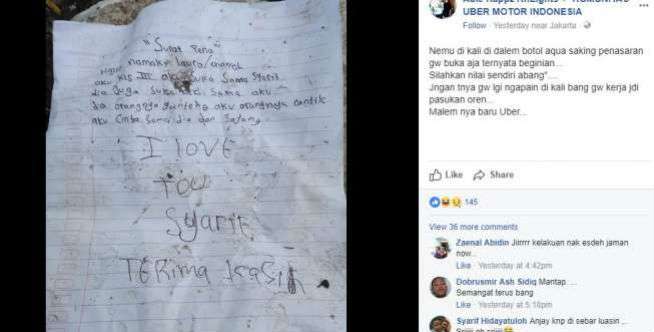 "Surat Pena"
namaku
aku kls III aku suka sama Sarif
dia juga suka sama aku
dia orangnya ganteng aku orangnya cantik
aku cinta sama dia dan sayang
I love
You
Syarif
TERima kasih
UBER MOTOR INDONESIA
Follow · Yesterday near Jakarta ·
Nemu di kali di dalem botol aqua saking penasaran
gw buka aja ternyata beginian...
Silahkan nilai sendiri abang"....
Jngan tnya gw lgi ngapain di kali bang gw kerja jdi
pasukan oren...
Malem nya baru Uber...
Like Share
145
View 36 more comments
Zaenal Abidin Jiirrrr kelakuan nak esdeh jaman
now...
Like · Yesterday at 4:42pm
Dobrusmir Ash Sidiq Mantap ....
Semangat terus bang
Like · Yesterday at 5:10pm
Syarif Hidayatuloh Anjay knp di sebar luasin ...